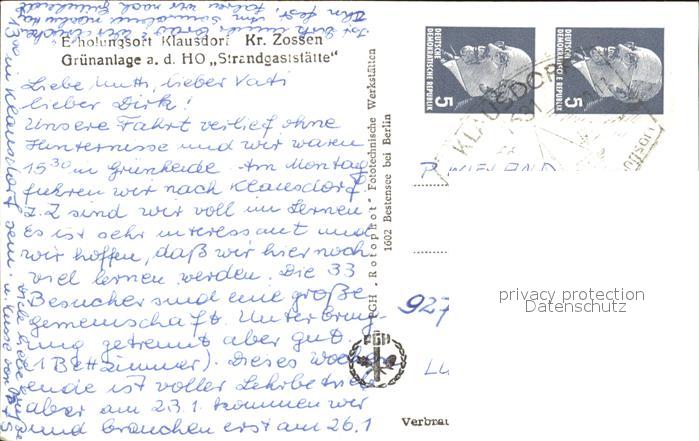 Erholungsort Klausdorf Kr. Zossen
Grünanlage a. d. HO „Strandgaststätte“
Liebe Mutti, lieber Vati
lieber Dirk!
Unsere Fahrt verlief ohne
Hindernisse und wir waren
15³⁰ in Grünheide. Am Montag
fuhren wir nach Klausdorf.
Z.Z sind wir voll im Lernen
Es ist sehr interessant und
wir hoffen, daß wir hier noch
viel lernen werden. Die 33
Besucher sind eine große
Gemeinschaft. Unterbring-
ung getrennt aber gut.
(1 Bettzimmer). Dieses Woch
ende ist voller Lehrbetrieb
aber am 23.1 kommen wir
und brauchen erst am 26.1
13⁰⁰ in Klausdorf sein.
PGH „Rotophot“ Fototechnische Werkstätten
1602 Bestensee bei Berlin
PGH
DEUTSCHE
DEMOKRATISCHE REPUBLIK
5
DEUTSCHE
DEMOKRATISCHE REPUBLIK
5
KLAUSDORF
927
LU
privacy protection
Datenschutz
Verbrau